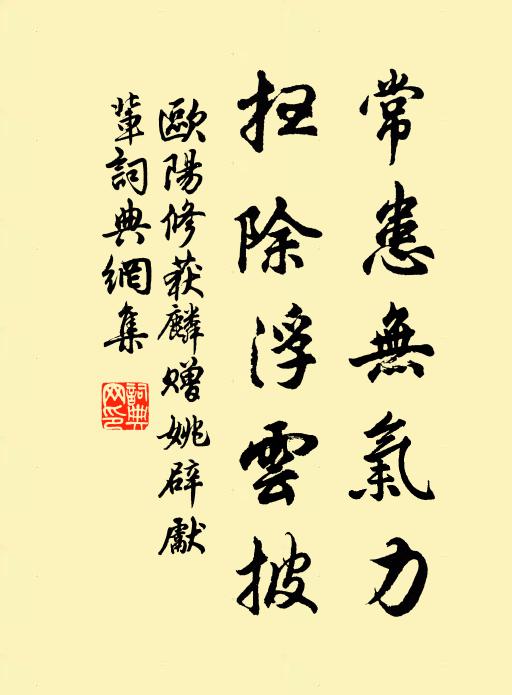 常患無氣力
扫除浮雲披
歐陽修获麟赠姚辟獻
輩詞典網集
詞典
网印